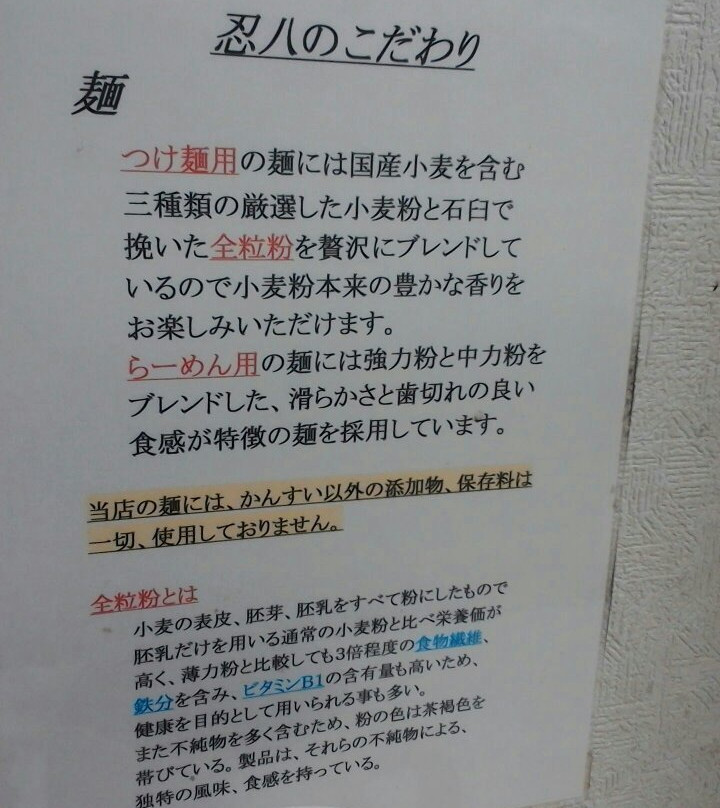 忍八のこだわり
麺
つけ麺用の麺には国産小麦を含む
三種類の厳選した小麦粉と石臼で
挽いた全粒粉を贅沢にブレンドして
いるので小麦粉本来の豊かな香りを
お楽しみいただけます。
らーめん用の麺には強力粉と中力粉を
ブレンドした、滑らかさと歯切れの良い
食感が特徴の麺を採用しています。
当店の麺には、かんすい以外の添加物、保存料は
一切、使用しておりません。
全粒粉とは
小麦の表皮、胚芽、胚乳をすべて粉にしたもので
胚乳だけを用いる通常の小麦粉と比べ栄養価が
高く、薄力粉と比較しても3倍程度の食物繊維、
鉄分を含み、ビタミンB1の含有量も高いため、
健康を目的として用いられる事も多い。
また不純物を多く含むため、粉の色は茶褐色を
帯びている。製品は、それらの不純物による、
独特の風味、食感を持っている。